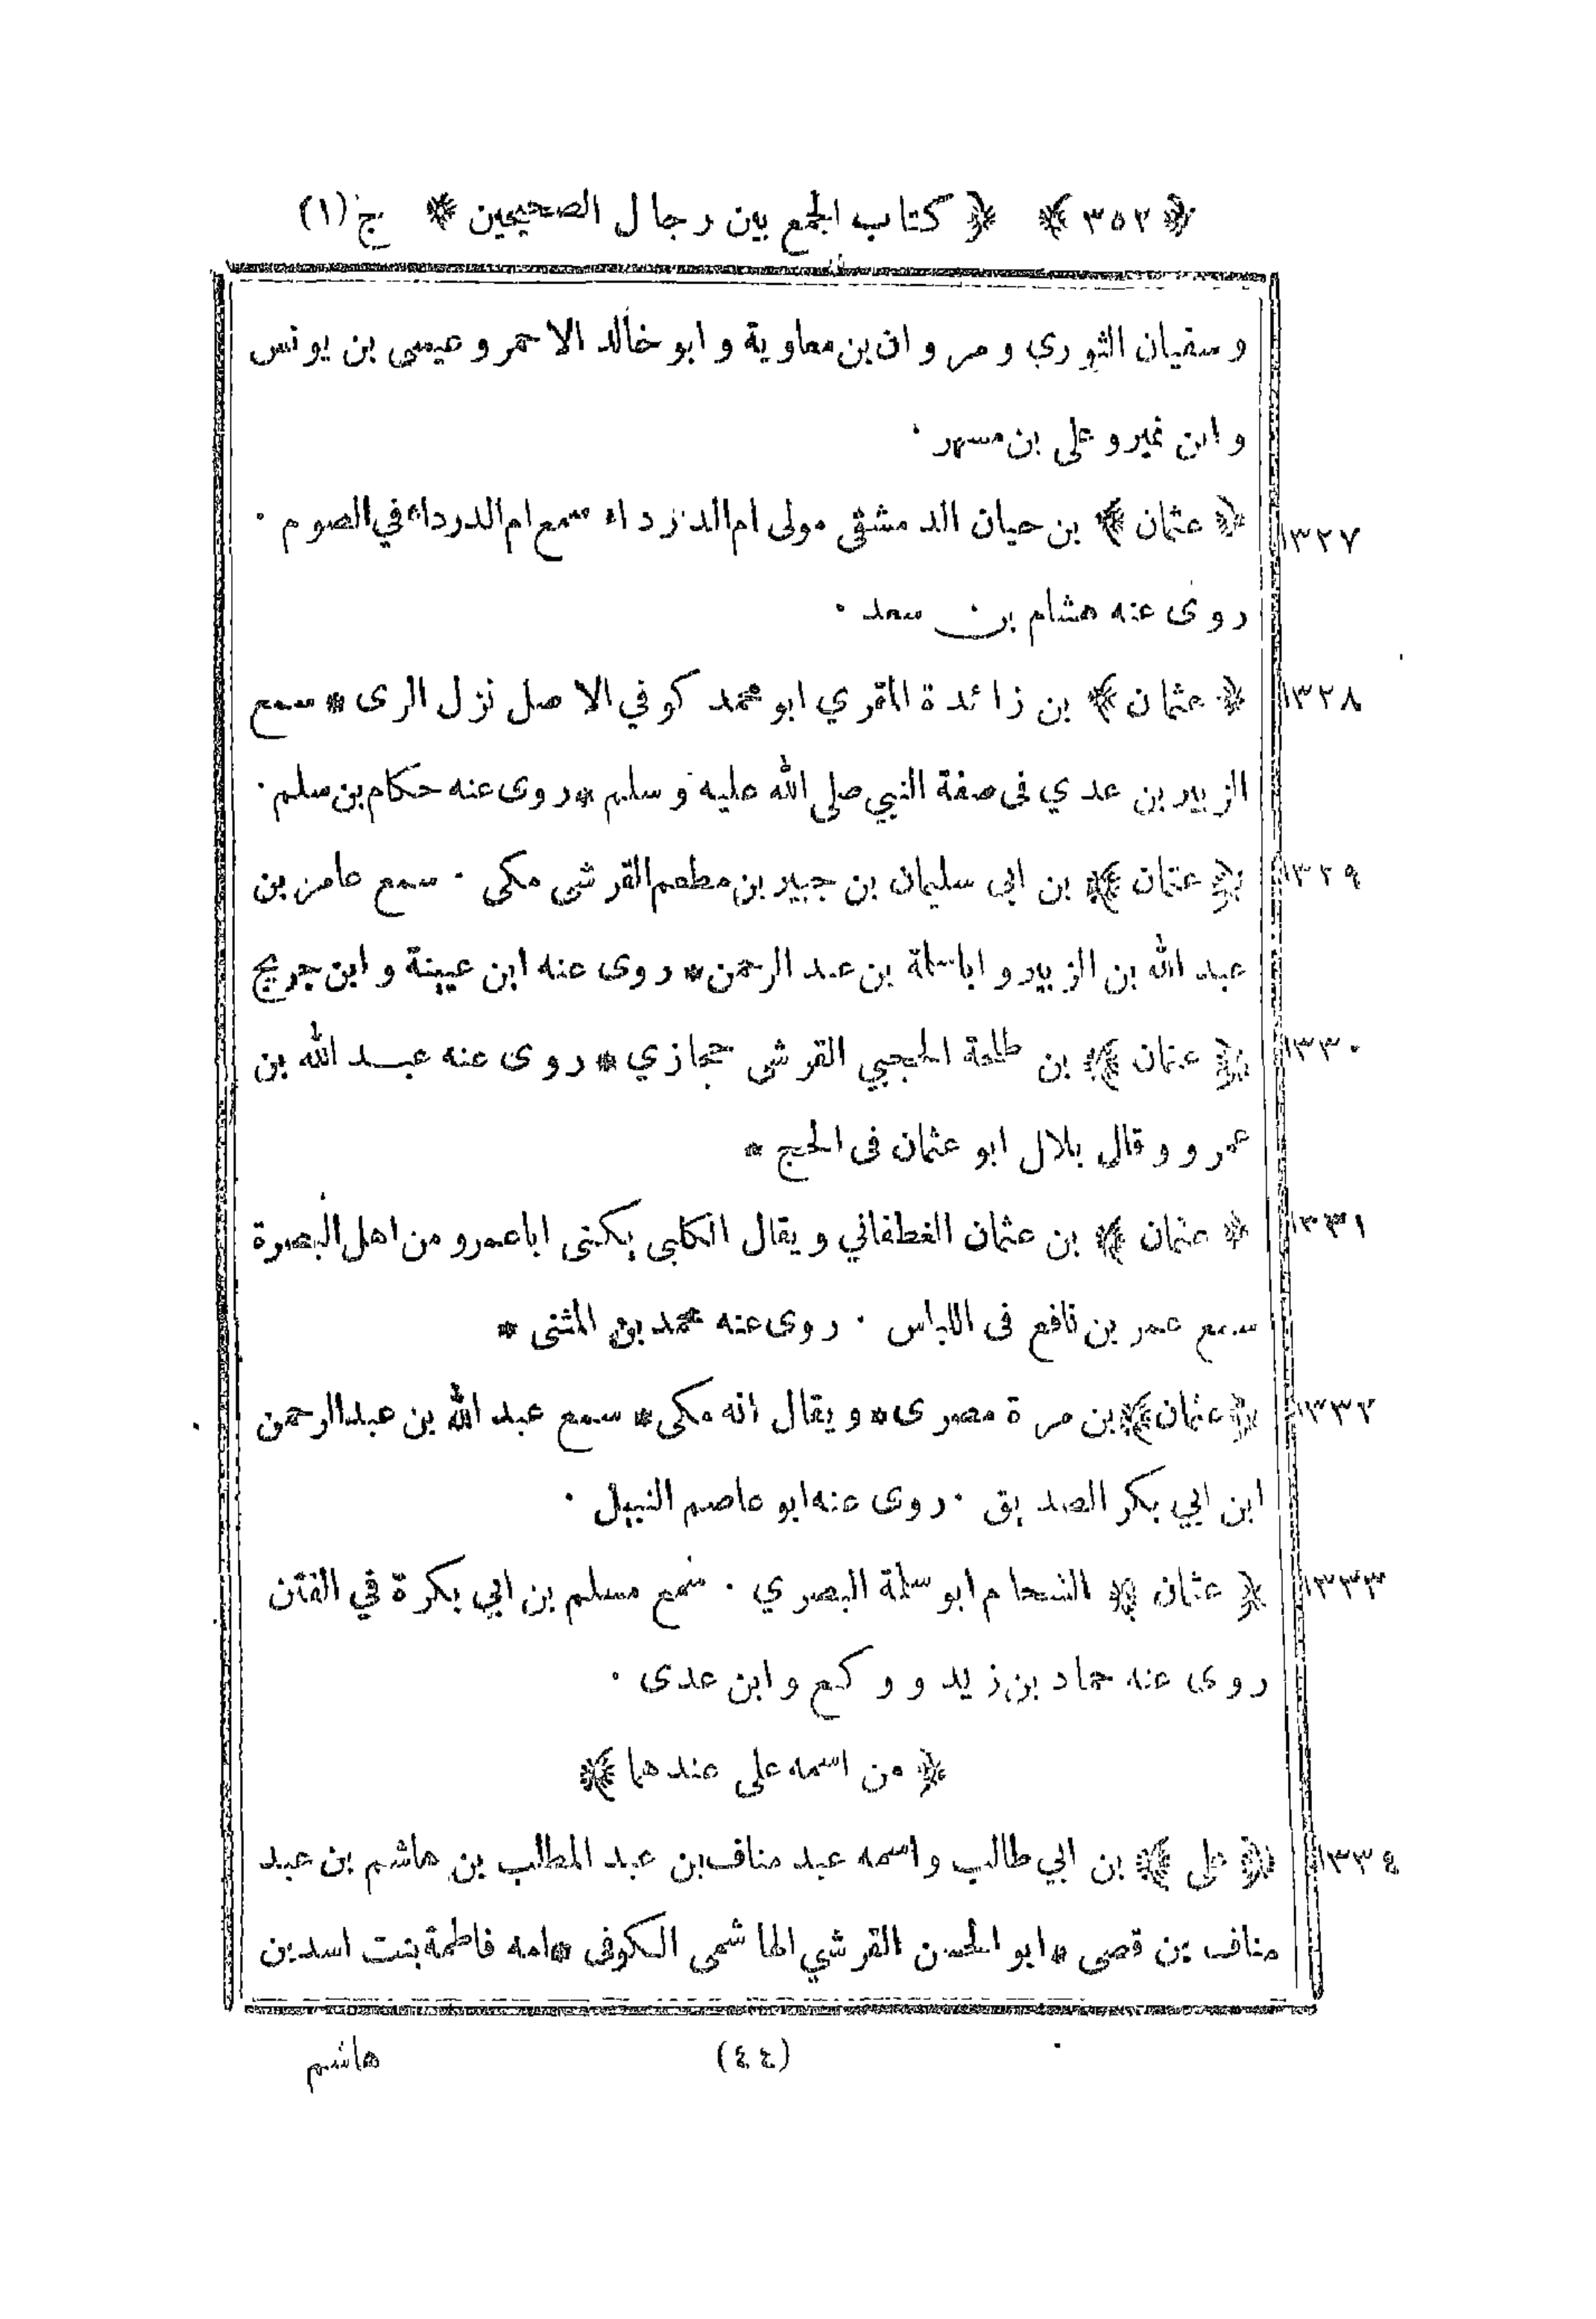 ﴿ ٣٥٢ ﴾ ﴿ كتاب الجمع بين رجال الصحيحين * ج (١)
وسفيان الثوري ومروان بن معاوية وابو خالد الاحمر وعيسى بن يونس
وابن نمير وعلى بن مسهر ٠
١٣٢٧ ﴿ عثمان ﴾ بن حيان الدمشقى مولى ام الدرداء سمع ام الدرداء في الصوم ٠
روى عنه هشام بن سعد ٠
١٣٢٨ ﴿ عثمان ﴾ بن زائدة المقري ابو محمد كوفي الاصل نزل الرى * سمع
الزبير بن عدي فى صفة النبي صلى الله عليه وسلم * روى عنه حكام بن سلم ٠
١٣٢٩ ﴿ عثمان ﴾ بن ابي سليمان بن جبير بن مطعم القرشى مكى ٠ سمع عامر بن
عبد الله بن الزبير واباسلمة بن عبد الرحمن * روى عنه ابن عيينة وابن جريج
١٣٣٠ ﴿ عثمان ﴾ بن طلحة الحجبي القرشى حجازي * روى عنه عبد الله بن
عمر و وقال بلال ابو عثمان فى الحج *
١٣٣١ ﴿ عثمان ﴾ بن عثمان الغطفاني ويقال الكلبى يكنى اباعمرو من اهل البصرة
سمع عمر بن نافع فى اللباس ٠ روى عنه محمد بن المثنى *
١٣٣٢ ﴿ عثمان ﴾ بن مرة مصرى * ويقال انه مكى * سمع عبد الله بن عبدالرحمن
ابن ابي بكر الصديق ٠ روى عنه ابو عاصم النبيل ٠
١٣٣٣ ﴿ عثمان ﴾ الشحام ابو سلمة البصري ٠ سمع مسلم بن ابي بكرة في الفتن
روى عنه حماد بن زيد و وكيع وابن عدى ٠
﴿ من اسمه على عندهما ﴾
١٣٣٤ ﴿ على ﴾ بن ابي طالب واسمه عبد مناف بن عبد المطلب بن هاشم بن عبد
مناف بن قصى * ابو الحسن القرشي الهاشمى الكوفى * امه فاطمة بنت اسد بن
(٤٤) هاشم